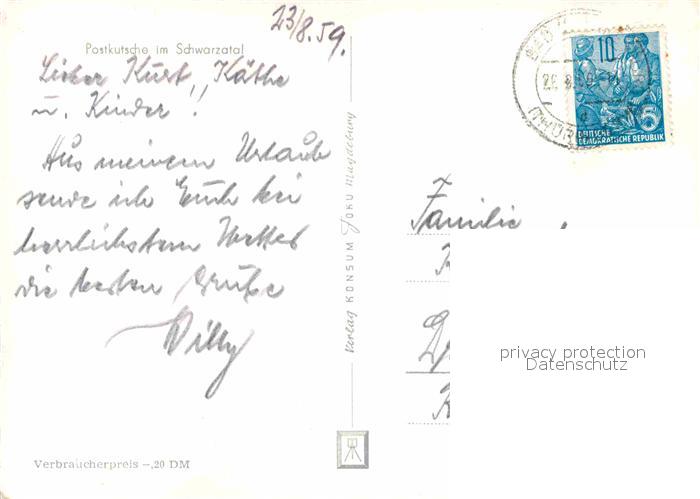 23/8.59.
Postkutsche im Schwarzatal
Lieber Kurt, Käthe
u. Kinder!!
Aus meinem Urlaub
sende ich Euch bei
herrlichstem Wetter
die besten Grüße
Willy
Verbraucherpreis –,20 DM
Verlag KONSUM FOKU Magdeburg
10
DEUTSCHE
DEMOKRATISCHE REPUBLIK
Familie
privacy protection
Datenschutz